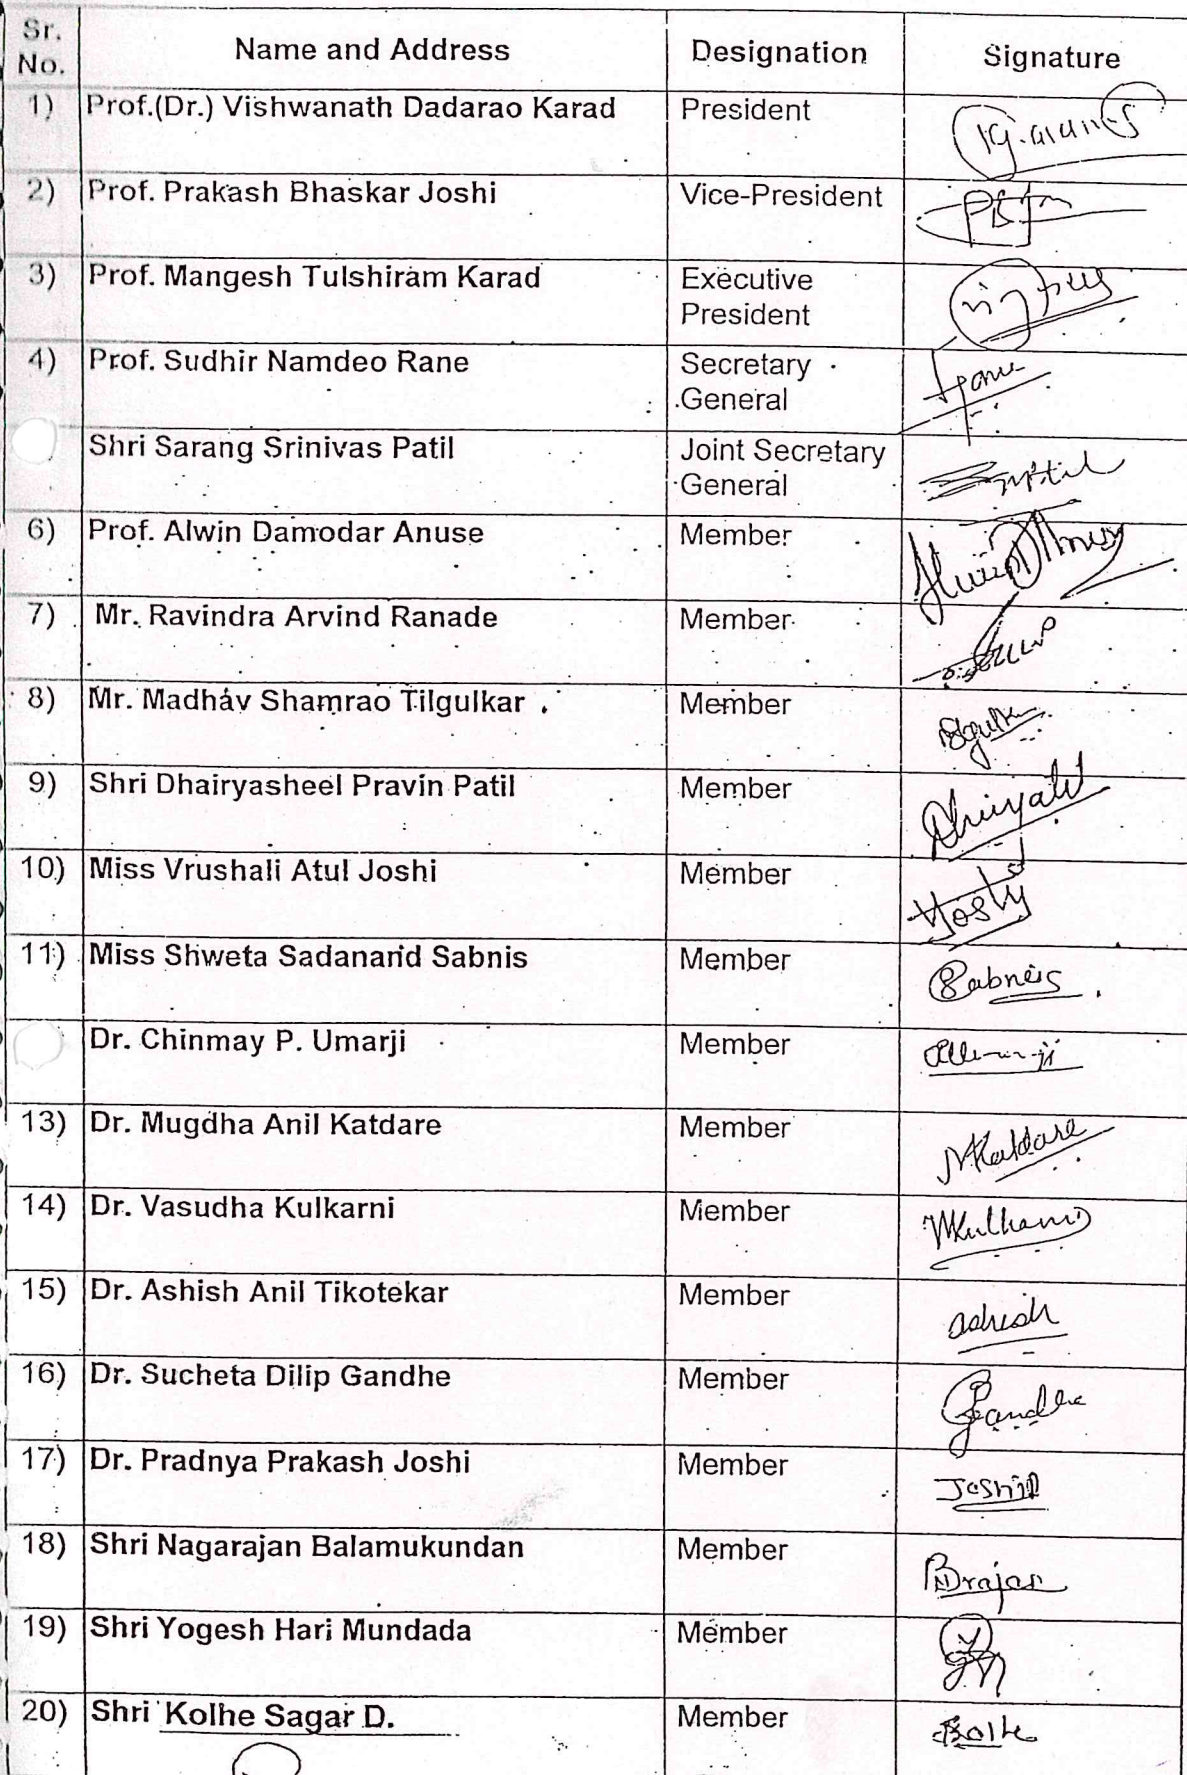 Sr. No. Name and Address Designation Signature
1) Prof.(Dr.) Vishwanath Dadarao Karad President
2) Prof. Prakash Bhaskar Joshi Vice-President
3) Prof. Mangesh Tulshiram Karad Executive President
4) Prof. Sudhir Namdeo Rane Secretary General
Shri Sarang Srinivas Patil Joint Secretary General
6) Prof. Alwin Damodar Anuse Member
7) Mr. Ravindra Arvind Ranade Member
8) Mr. Madhav Shamrao Tilgulkar Member
9) Shri Dhairyasheel Pravin Patil Member
10) Miss Vrushali Atul Joshi Member
11) Miss Shweta Sadanand Sabnis Member Sabnis
Dr. Chinmay P. Umarji Member
13) Dr. Mugdha Anil Katdare Member MKatdare
14) Dr. Vasudha Kulkarni Member VKulkarni
15) Dr. Ashish Anil Tikotekar Member ashish
16) Dr. Sucheta Dilip Gandhe Member Gandhe
17) Dr. Pradnya Prakash Joshi Member
18) Shri Nagarajan Balamukundan Member
19) Shri Yogesh Hari Mundada Member
20) Shri Kolhe Sagar D. Member